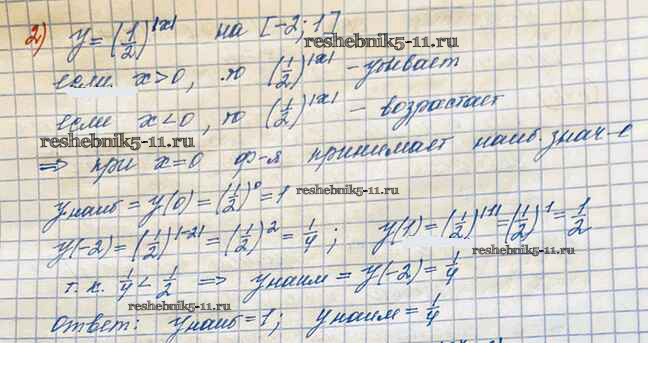 2) y = (1/2)^|x| на [-2; 1]
reshebnik5-11.ru
если x>0, то (1/2)^|x| - убывает
если x<0, то (1/2)^|x| - возрастает
reshebnik5-11.ru
=> при x=0 ф-я принимает наиб. знач-е
yнаиб = y(0) = (1/2)^0 = 1
reshebnik5-11.ru
y(-2) = (1/2)^|-2| = (1/2)^2 = 1/4 ; y(1) = (1/2)^|1| = (1/2)^1 = 1/2
reshebnik5-11.ru
т.к. 1/4 < 1/2 => yнаим = y(-2) = 1/4
reshebnik5-11.ru
Ответ: yнаиб = 1; yнаим = 1/4